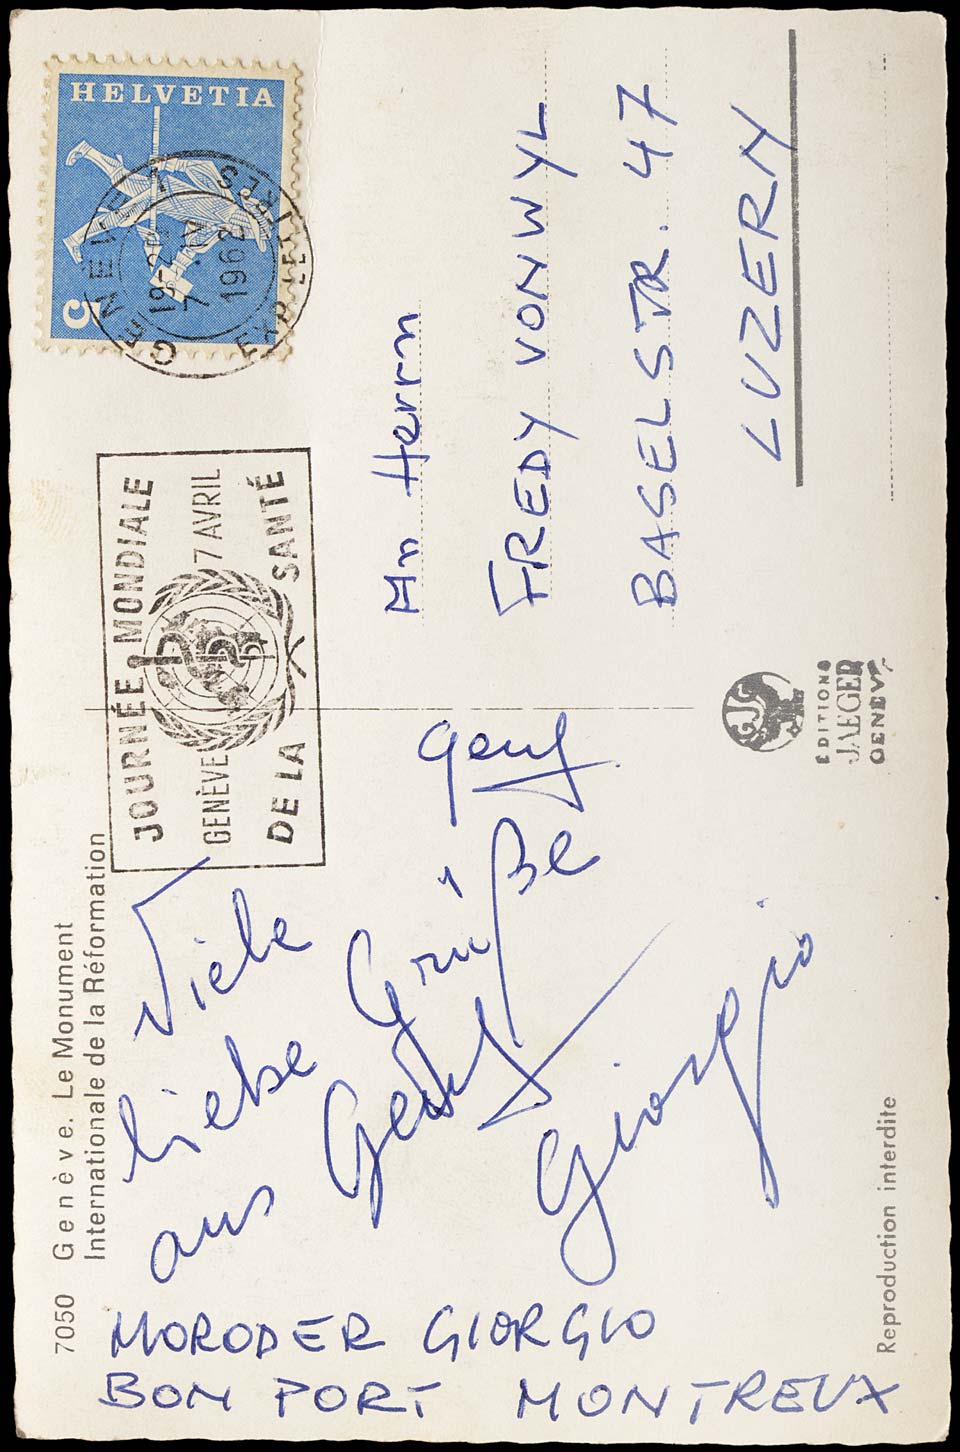 7050 Genève. Le Monument
Internationale de la Réformation
Viele
liebe Grüße
aus Genf
Giorgio
MORODER GIORGIO
BON PORT MONTREUX
Genf
Reproduction interdite
EDITIONS
JAEGER
GENEVE
JOURNÉE MONDIALE
GENÈVE 7 AVRIL
DE LA SANTÉ
HELVETIA
5
GENÈVE 1
EXP. LETTRES
7.IV
Herrn
FREDY VONWYL
BASELSTR. 47
LUZERN